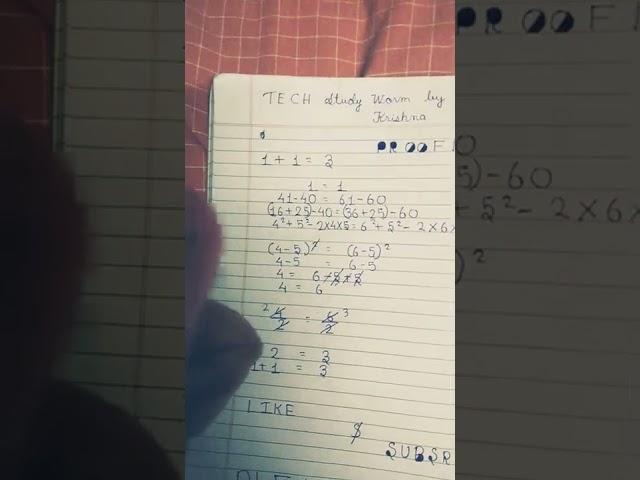 TECH Study Worm by
Krishna
PROOF
1 + 1 = 3
1 = 1
41-40 = 61-60
(16+25)-40=(36+25)-60
4²+5²-2×4×5=6²+5²-2×6×
(4-5)² = (6-5)²
4-5 = 6-5
4 = 6-5+5
4 = 6
²4/2 = 6/2³
2 = 3
1+1 = 3
LIKE
$
SUBSR
PROOF
5)-60
+5²-2×6×
)²